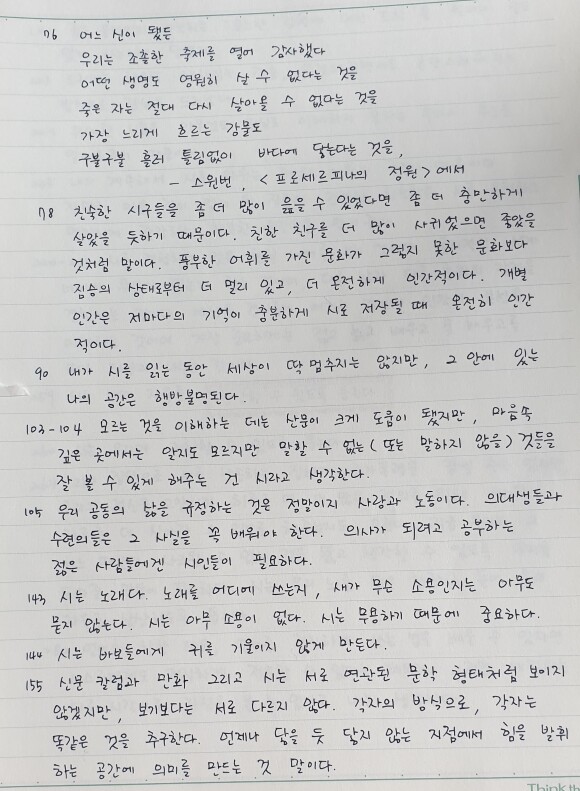 76 어느 신이 됐든
우리는 조촐한 축제를 열어 감사했다
어떤 생명도 영원히 살 수 없다는 것을
죽은 자는 절대 다시 살아올 수 없다는 것을
가장 느리게 흐르는 강물도
구불구불 흘러 틀림없이 바다에 닿는다는 것을,
- 스윈번, <프로세르피나의 정원>에서
78 친숙한 시구들을 좀 더 많이 읊을 수 있었다면 좀 더 충만하게
살았을 듯하기 때문이다. 친한 친구를 더 많이 사귀었으면 좋았을
것처럼 말이다. 풍부한 어휘를 가진 문화가 그렇지 못한 문화보다
짐승의 상태로부터 더 멀리 있고, 더 온전하게 인간적이다. 개별
인간은 저마다의 기억이 충분하게 시로 저장될 때 온전히 인간
적이다.
90 내가 시를 읽는 동안 세상이 딱 멈추지는 않지만, 그 안에 있는
나의 공간은 행방불명된다.
103-104 모르는 것을 이해하는 데는 산문이 크게 도움이 됐지만, 마음속
깊은 곳에서는 알지도 모르지만 말할 수 없는(또는 말하지 않을) 것들을
잘 볼 수 있게 해주는 건 시라고 생각한다.
105 우리 공동의 삶을 규정하는 것은 정말이지 사랑과 노동이다. 의대생들과
수련의들은 그 사실을 꼭 배워야 한다. 의사가 되려고 공부하는
젊은 사람들에겐 시인들이 필요하다.
143 시는 노래다. 노래를 어디에 쓰는지, 새가 무슨 소용인지는 아무도
묻지 않는다. 시는 아무 소용이 없다. 시는 무용하기 때문에 중요하다.
144 시는 바보들에게 귀를 기울이지 않게 만든다.
155 신문 칼럼과 만화 그리고 시는 서로 연관된 문학 형태처럼 보이지
않겠지만, 보기보다는 서로 다르지 않다. 각자의 방식으로, 각자는
똑같은 것을 추구한다. 언제나 닿을 듯 닿지 않는 지점에서 힘을 발휘
하는 공간에 의미를 만드는 것 말이다.
Think th